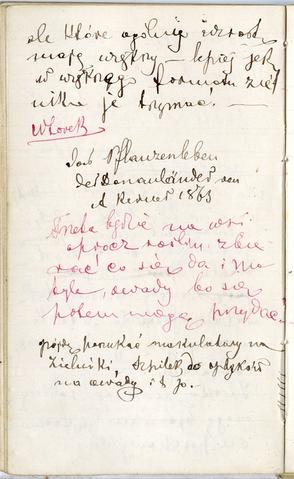 ale które ogólnie wzrost
mają większy – lepiej jak
w większego formatu ziel
nika je trzymać. —
Wtorek
Das Pflanzenleben
der Donauländer von
A Kerner 1863
Trzeba będzie na wsi
oprócz roślin zbie
rać co się da i mo
tyle, owady bo się
potem mogą przydać.
poszukać makulatury na
Zielniki, Szpilek do
na owady i